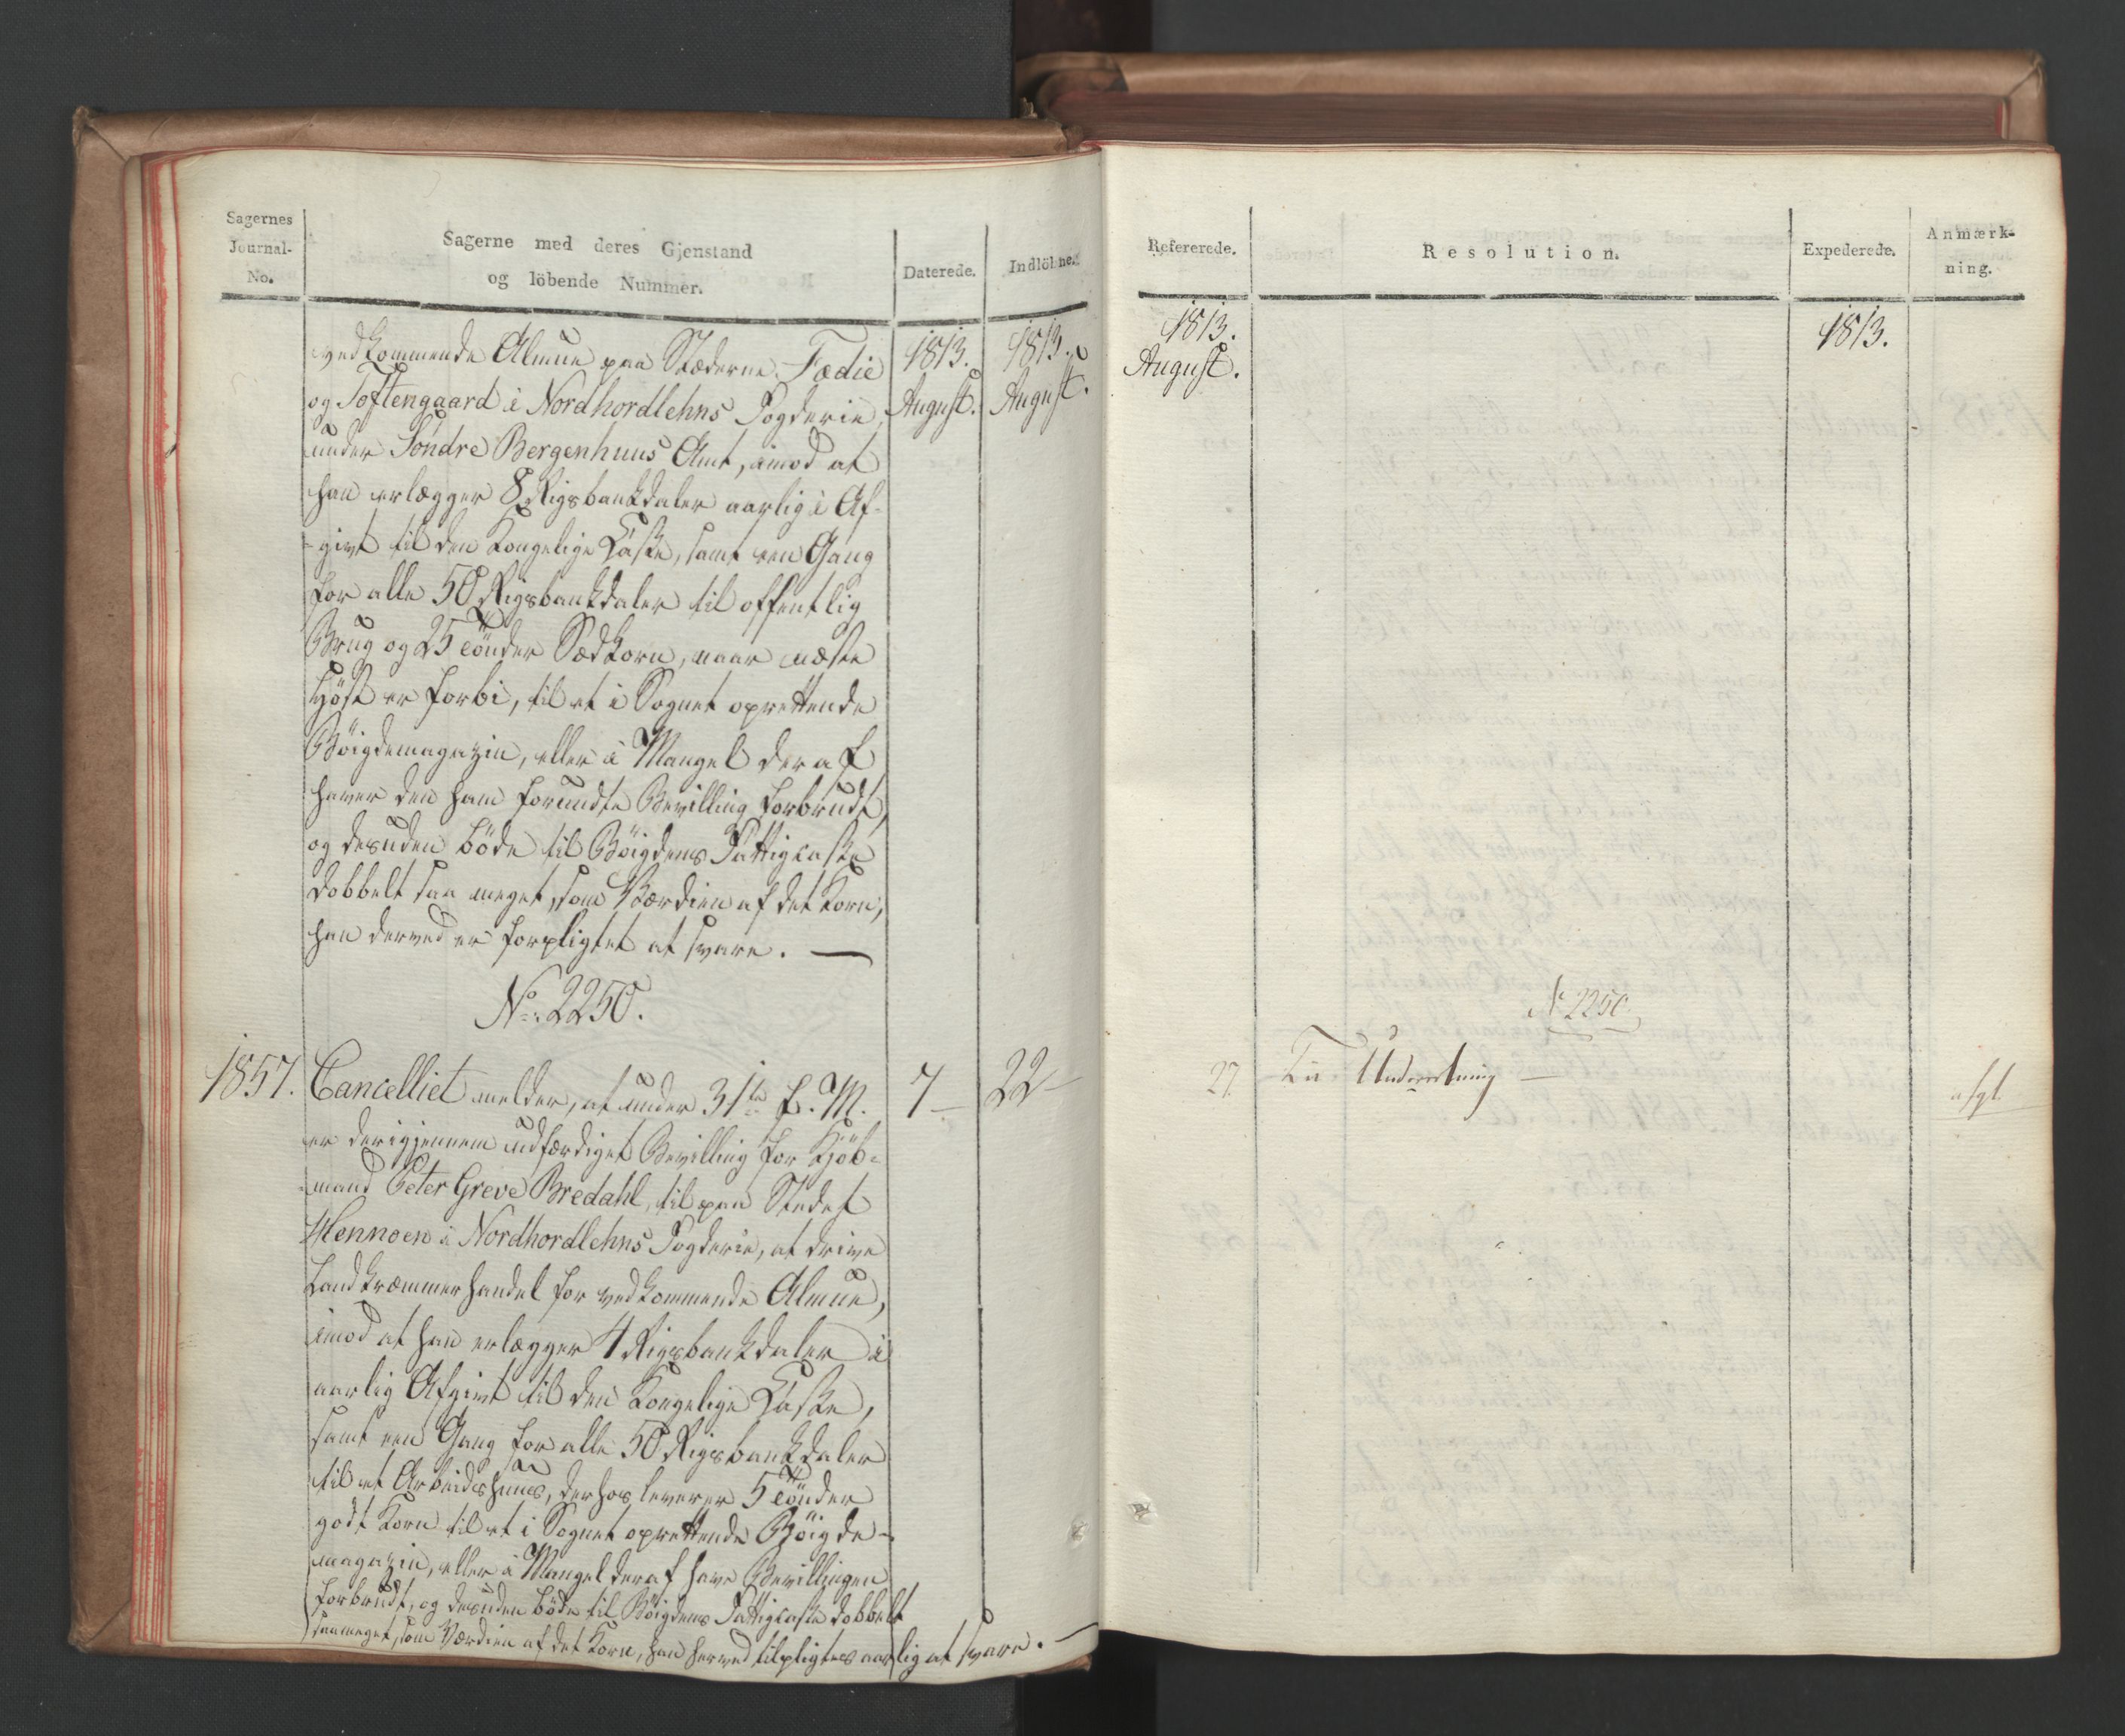 Sagernes
Journal-
No.
Sagerne med deres Gjenstand
og löbende Nummer.
Daterede.
Indlöbne.
vedkommende Almue paa Stæderne Fædie
og Toftengaard i Nordhordlehns Fogderie
under Söndre Bergenhuus Amt, imod at
han erlægger 8 Rigsbankdaler aarlig i Af-
-givt til den Kongelige Casse, samt een Gang
for alle 50 Rigsbankdaler til offentlig
Brug og 25 Tönder Sædkorn, naar næste
Höst er forbi, til et i Sognet oprettende
Böigdemagazin, eller i Mangel deraf
haver den ham forundte Bevilling forbrudt,
og desuden böde til Böigdens Fattigcasse
dobbelt saa meget, som Værdien af det Korn,
han derved er forpligtet at svare. —
1813.
August.
1813.
August.
No. 2250.
1857.
Cancelliet melder, at under 31te f. M.
7 —
22 —
er derigjennem udfærdiget Bevilling for Kjöb-
-mand Peter Greve Bredahl, til paa Stedet
Hennoen i Nordhordlehns Fogderie, at drive
Landkræmmerhandel for vedkommende Almue,
imod at han erlægger 4 Rigsbankdaler i
aarlig Afgivt til den Kongelige Casse,
samt een Gang for alle 50 Rigsbankdaler
til et Arbeidshuus, derhos leverer 5 Tönder
godt Korn til et i Sognet oprettende Böigde-
magazin, eller i Mangel deraf have Bevillingen
forbrudt, og desuden böde til Böigdens Fattigcasse dobbelt
saameget, som Værdien af det Korn, han herved tilpligtes aarlig at svare. —
Refererede.
Resolution.
Expederede.
Anmærk-
ning.
1813.
August.
1813.
N 2250.
27.
Til Underretning —
afgl.